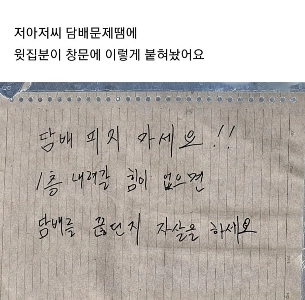 저아저씨 담배문제땜에
윗집분이 창문에 이렇게 붙혀놨어요
담배 피지 마세요!!
1층 내려갈 힘이 없으면
담배를 끊던지 자살을 하세요